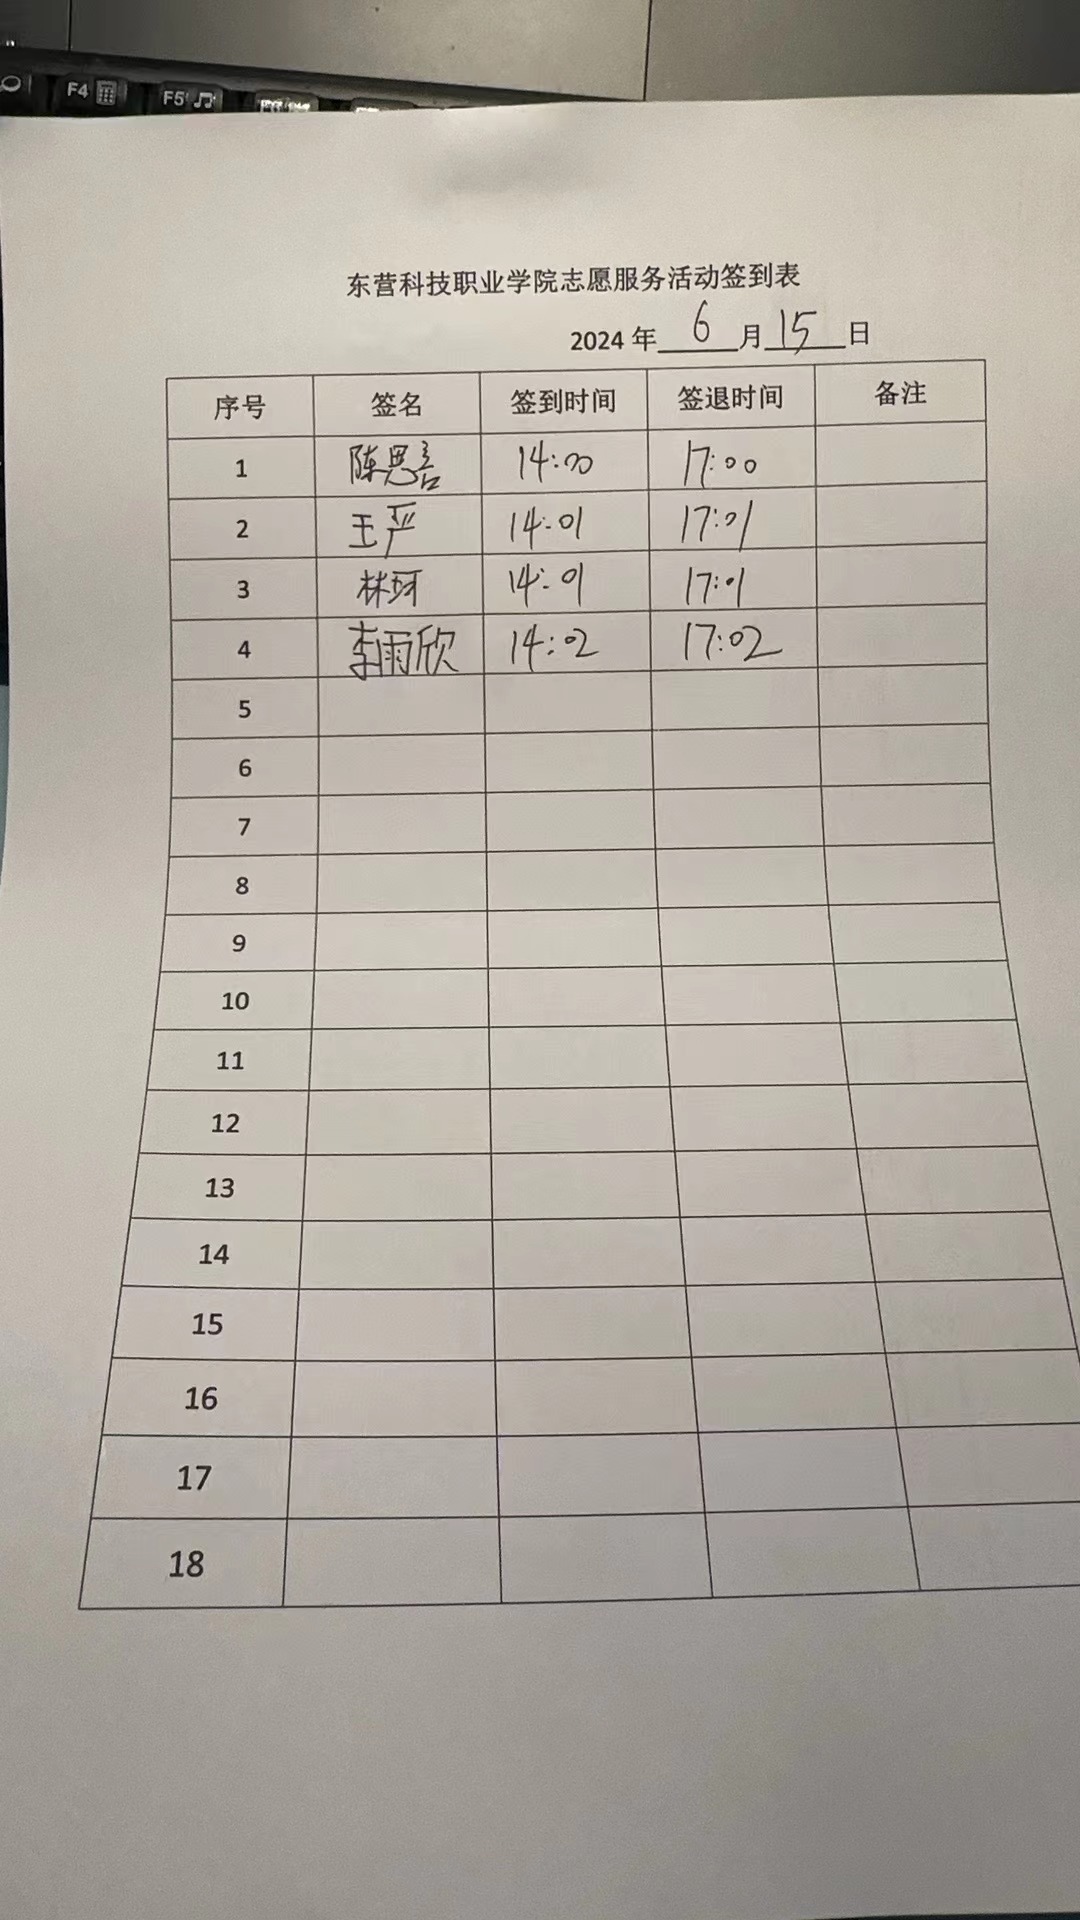 F4
F5
东营科技职业学院志愿服务活动签到表
2024 年 6 月 15 日
序号 签名 签到时间 签退时间 备注
1 陈思言 14:00 17:00
2 王严 14:01 17:01
3 林珂 14:01 17:01
4 李雨欣 14:02 17:02
5
6
7
8
9
10
11
12
13
14
15
16
17
18